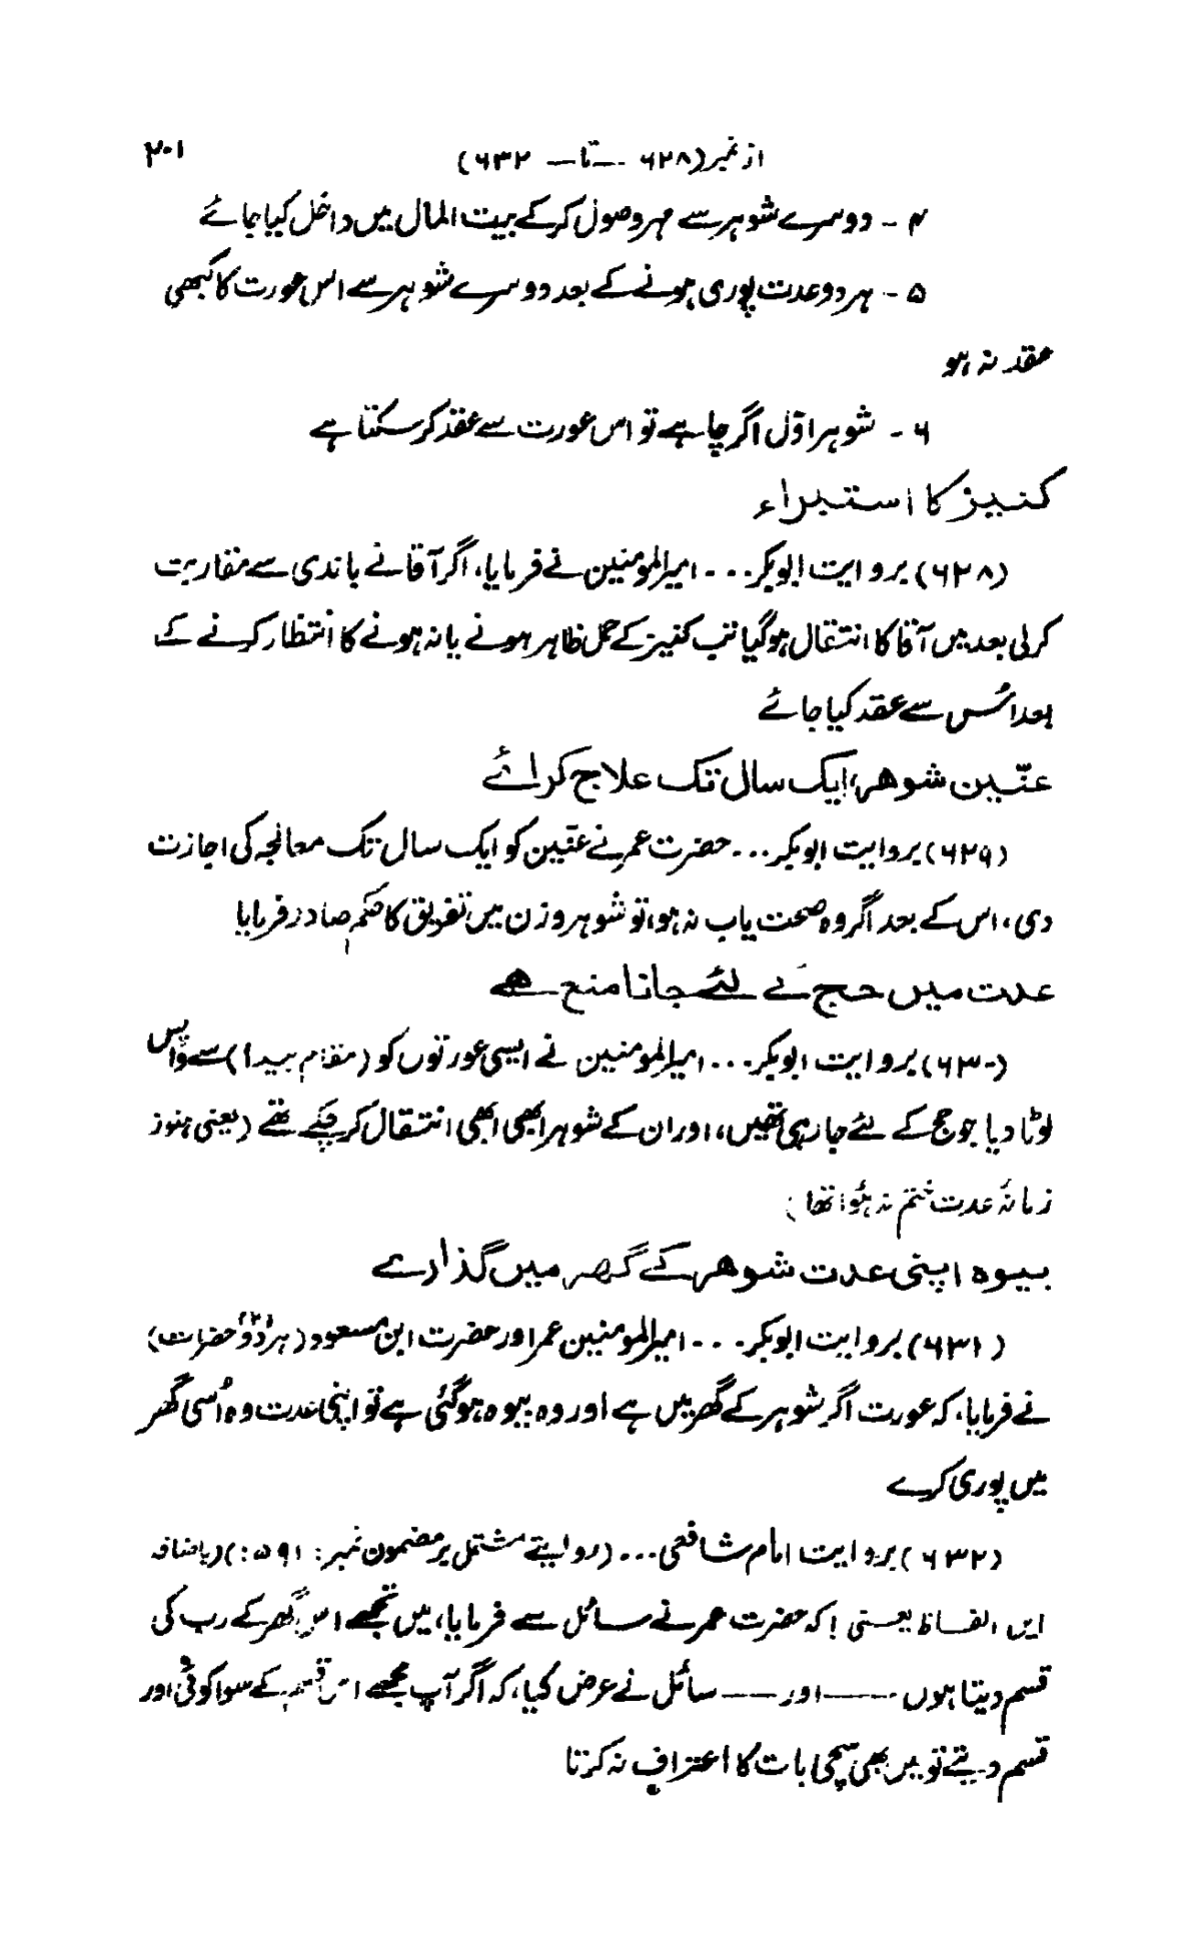 از نمبر (۶۲۸ — تا — ۶۳۲) ۲۰۱
۴ - دوسرے شوہر سے مہر وصول کر کے بیت المال میں داخل کیا جائے
۵ - ہر دو عدت پوری ہونے کے بعد دوسرے شوہر سے اس عورت کا کبھی
عقد نہ ہو
۶ - شوہر اوّل اگر چاہے تو اس عورت سے عقد کر سکتا ہے
کنیز کا استبراء
(۶۲۸) بروایت ابوبکر ... امیرالمومنین نے فرمایا، اگر آقا نے باندی سے مقاربت
کر لی بعد میں آقا کا انتقال ہو گیا تب کنیز کے حمل ظاہر ہونے یا نہ ہونے کا انتظار کرنے کے
بعد اُس سے عقد کیا جائے
عنّین شوھر، ایک سال تک علاج کرائے
(۶۲۹) بروایت ابوبکر ... حضرت عمر نے عنّین کو ایک سال تک معالجہ کی اجازت
دی، اس کے بعد اگر وہ صحت یاب نہ ہو، تو شوہر و زن میں تفریق کا حکم صادر فرمایا
عدت میں حج کے لئے جانا منع ھے
(۶۳۰) بروایت ابوبکر ... امیرالمومنین نے ایسی عورتوں کو (مقام بیدا) سے واپس
لوٹا دیا جو حج کے لئے جا رہی تھیں، اور ان کے شوہر ابھی ابھی انتقال کر چکے تھے (یعنی ہنوز
زمانۂ عدت ختم نہ ہُوا تھا)
بیوہ اپنی عدت شوھر کے گھر میں گذارے
(۶۳۱) بروایت ابوبکر ... امیرالمومنین عمر اور حضرت ابن مسعود (ہر دو حضرات)
نے فرمایا، کہ عورت اگر شوہر کے گھر میں ہے اور وہ بیوہ ہو گئی ہے تو اپنی عدت وہ اُسی گھر
میں پوری کرے
(۶۳۲) بروایت امام شافعی ... (روایتے مشتمل بر مضمون نمبر: ۵۹۱:) (باضافہ
ایں الفاظ یعنی! کہ حضرت عمر نے سائل سے فرمایا، میں تجھے اس گھر کے رب کی
قسم دیتا ہوں —— اور —— سائل نے عرض کیا، کہ اگر آپ مجھے اس قسم کے سوا کوئی اور
قسم دیتے تو میں بھی سچی بات کا اعتراف نہ کرتا